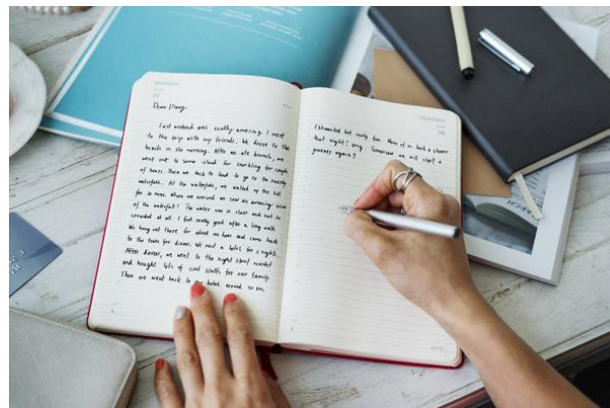 Dear Diary
Last weekend was really amazing. I went
to the trip with my friends. We drove to the
beach in the morning. After we ate brunch, we
went out to some island for snorkeling for couple
of hours. Then we back to land to go to the nearby
waterfall. At the waterfall, we walked up the hill
for 20 mins. When we arrived we saw an amazing view
of the waterfall! The water was so clear and not so
crowded at all. I felt really good after a long walk.
We hang out there for about an hour and came back
to the town for dinner. We rent a hotel for 2 nights.
After dinner, we went to the night street market
and bought lots of cool stuffs for our family.
Then we went back to our hotel around 10 pm.
Exhausted but really fun. None of us took a shower
that night! omg. Tomorrow we will start a
journey again!!